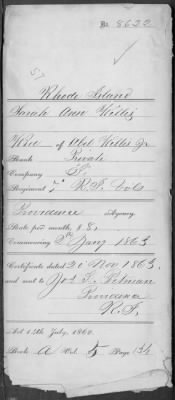 No. 8622
57
Rhode Island
Sarah Ann Willis
Wid of Abel Willis Jr
Rank Private
Company F.
Regiment 7" R.I. Vols
Providence Agency.
Rate per month, $ 8,
Commencing 2d Jany 1863
Certificate dated 20 Nov 1863,
and sent to Jos. S. Pitman
Providence
R.I.
Act 14th July, 1862.
Book A Vol. 5 Page 134